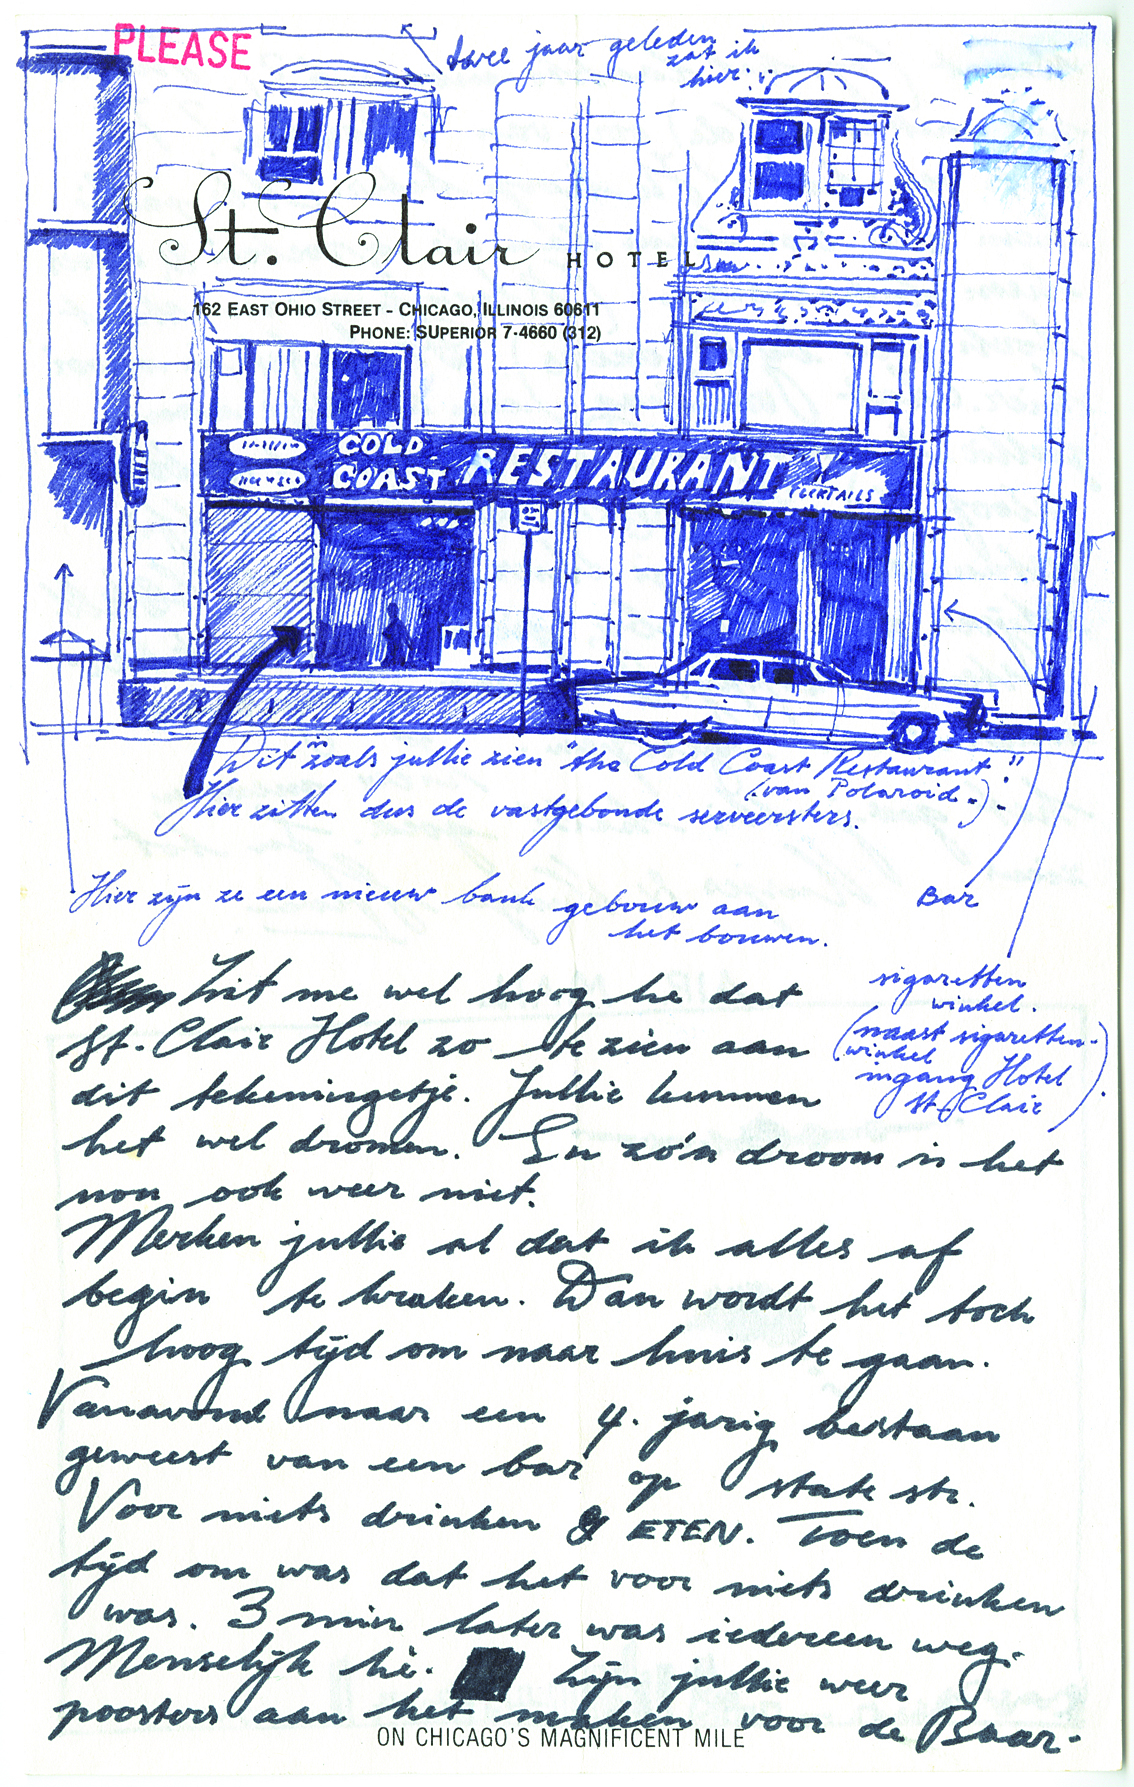 PLEASE
twee jaar geleden
zat ik
hier
St. Clair HOTEL
162 EAST OHIO STREET - CHICAGO, ILLINOIS 60611
PHONE: SUPERIOR 7-4660 (312)
COLD
COAST RESTAURANT
COCKTAILS
Dit zoals jullie zien "the Cold Coast Restaurant"!
(van Polaroid.)
Hier zitten dus de vastgebonde serveersters.
Hier zijn ze een nieuw bank gebouw aan
het bouwen.
Bar
sigaretten
winkel.
(naast sigaretten-
winkel
ingang Hotel
St. Clair)
Zit me wel hoog he dat
St. Clair Hotel zo te zien aan
dit tekeningetje. Jullie kunnen
het wel dromen. En zo'n droom is het
nou ook weer niet.
Merken jullie al dat ik alles af
begin te kraken. Dan wordt het toch
hoog tijd om naar huis te gaan.
Vanavond naar een 4. jarig bestaan
geweest van een bar op state str.
Voor niets drinken & ETEN. Toen de
tijd om was dat het voor niets drinken
was. 3 min later was iedereen weg.
Menselijk hè. Zijn jullie weer
poosters aan het maken voor de Baar-
ON CHICAGO'S MAGNIFICENT MILE